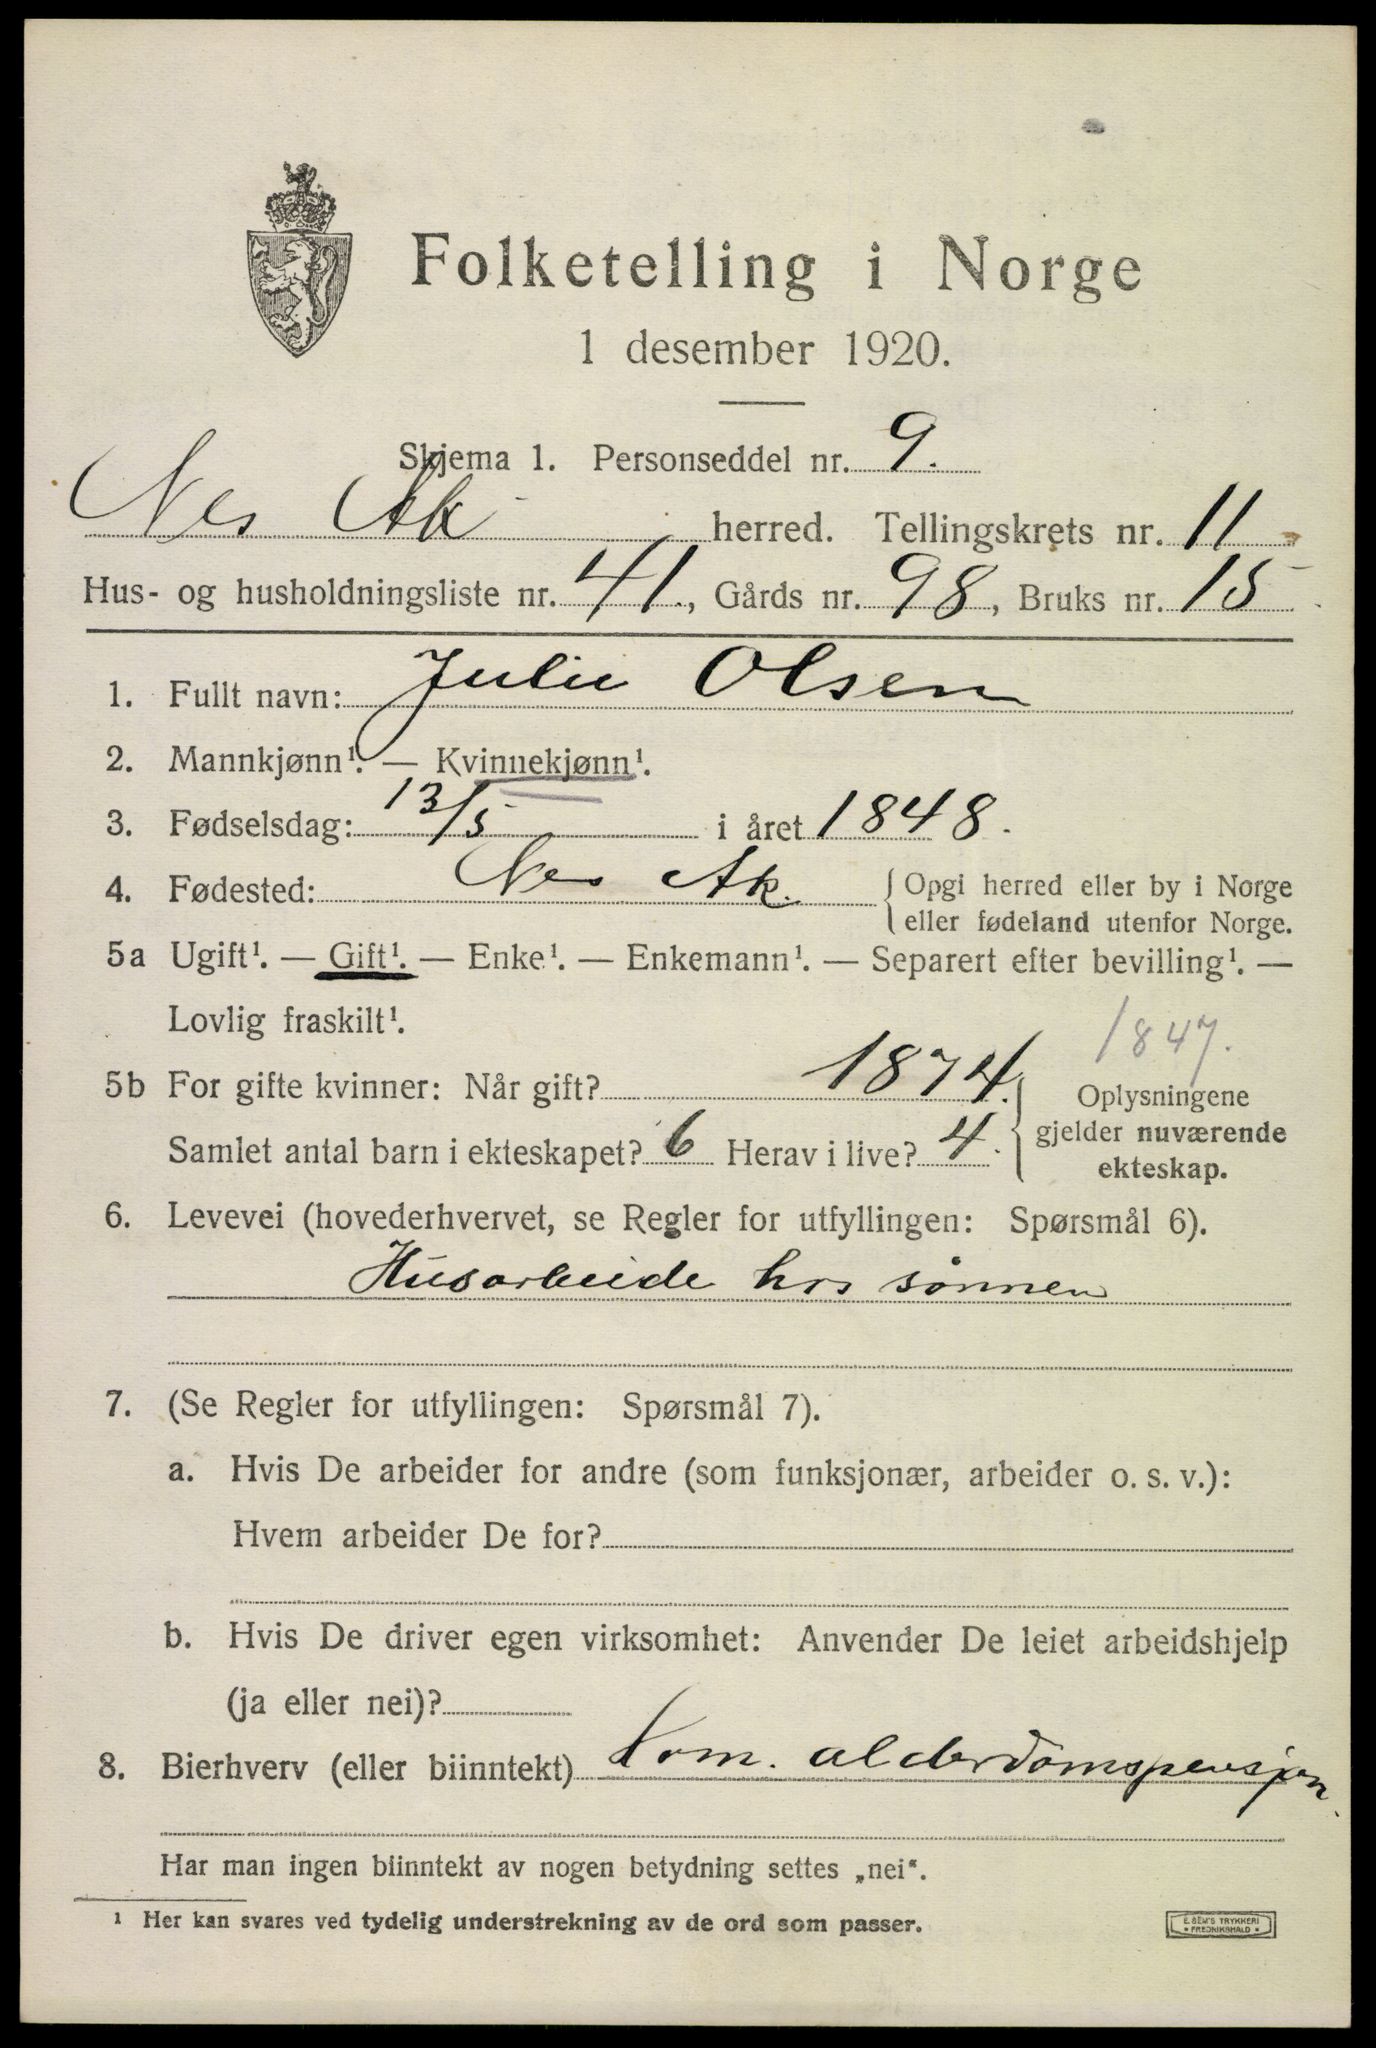 Folketelling i Norge
1 desember 1920.
Skjema 1. Personseddel nr. 9.
Nes Ak herred. Tellingskrets nr. 11
Hus- og husholdningsliste nr. 41, Gårds nr. 98, Bruks nr. 15
1. Fullt navn: Julie Olsen
2. Mannkjønn¹. — Kvinnekjønn¹.
3. Fødselsdag: 13/5 i året 1848.
4. Fødested: Nes Ak. { Opgi herred eller by i Norge
eller fødeland utenfor Norge.
5a Ugift¹. — Gift¹. — Enke¹. — Enkemann¹. — Separert efter bevilling¹. —
Lovlig fraskilt¹.
1847.
5b For gifte kvinner: Når gift? 1874. { Oplysningene
gjelder nuværende
Samlet antal barn i ekteskapet? 6 Herav i live? 4.
ekteskap.
6. Levevei (hovederhvervet, se Regler for utfyllingen: Spørsmål 6).
Husarbeide hos sønnen
7. (Se Regler for utfyllingen: Spørsmål 7).
a. Hvis De arbeider for andre (som funksjonær, arbeider o. s. v.):
Hvem arbeider De for?
b. Hvis De driver egen virksomhet: Anvender De leiet arbeidshjelp
(ja eller nei)?
8. Bierhverv (eller biinntekt) Kom. alderdomspensjon.
Har man ingen biinntekt av nogen betydning settes „nei“.
¹ Her kan svares ved tydelig understrekning av de ord som passer.
E. SEM'S TRYKKERI
* FREDRIKSHALD *